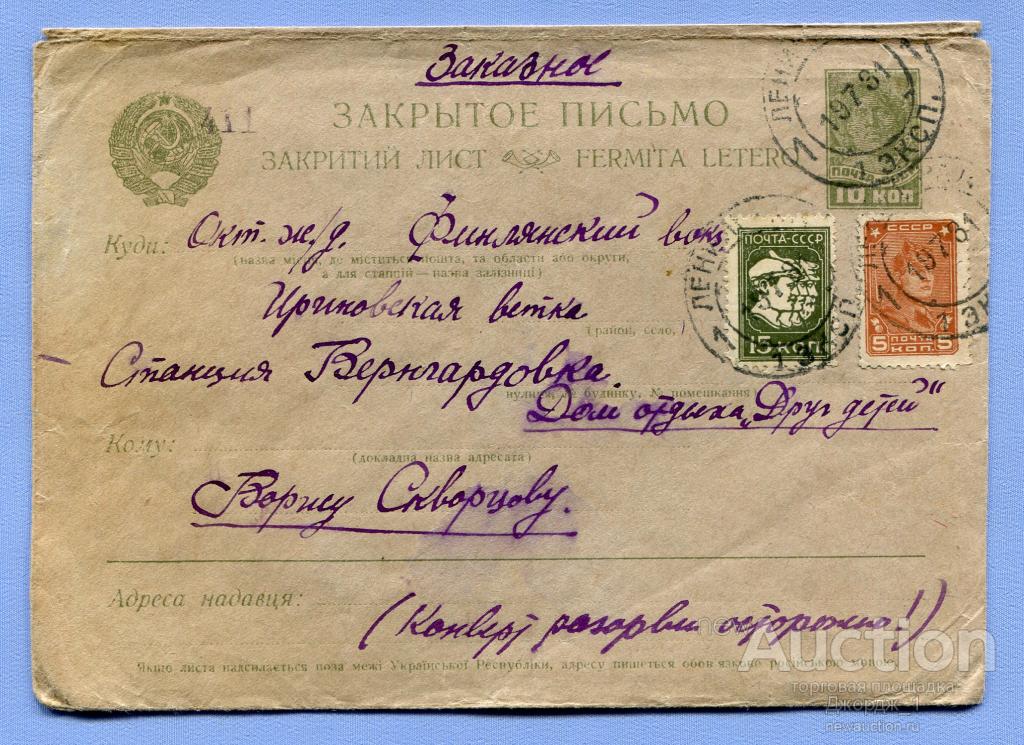 Заказное
411
ЗАКРЫТОЕ ПИСЬМО
ЗАКРИТИЙ ЛИСТ FERMITA LETERO
ПОЧТА
10 КОП
ЛЕНИ 1 19 7 31 1 ЭКСП.
Куди: Окт. ж/д. Финлянский вокз
(назва місця, де міститься пошта, та области або округи,
а для станцій — назва залізниці)
ПОЧТА-СССР
15 КОП.
ЛЕНИ 1 ЭКСП.
СССР
ПОЧТА
5 КОП. 5
19 7 31 1 ЭК
Ириновская ветка
(район, село,
Станция Вернгардовка.
вулиця, № будинку, № помешкання)
Дом отдыха „Друг детей"
Кому:
(докладна назва адресата)
Борису Скворцову.
Адреса надавця:
(Конверт разорви осторожно!)
Якщо листа надсилається поза межі Української Республіки, адресу пишеться обов'язково російською мовою.
newAuction
торговая площадка
Джордж_1
newauction.ru